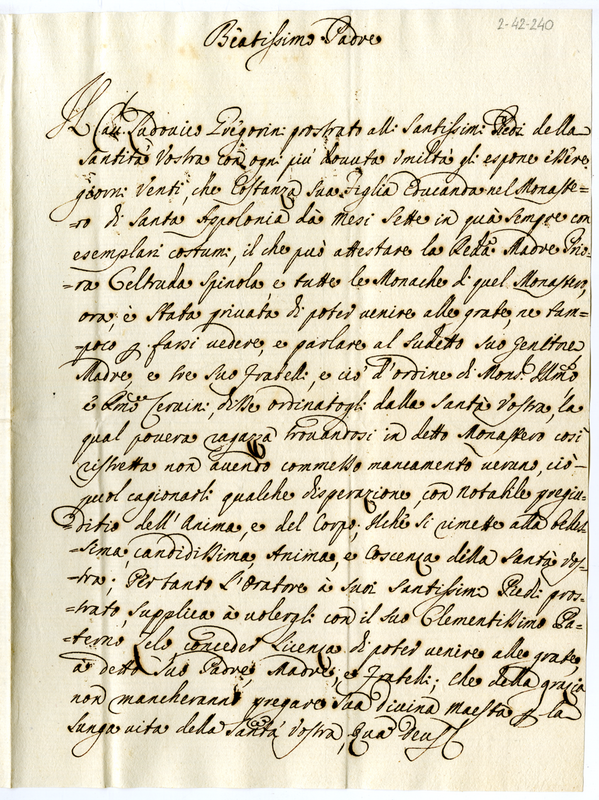 2-42-240
Beatissimo Padre
Il Cav. Ludovico Gregorini prostrato alli Santissimi Piedi della
Santità Vostra con ogni più dovuta umiltà gli espone essere
giorni Venti, che Costanza Sua Figlia Educanda nel Monaste=
=ro di Santa Appolonia da mesi Sette in quà Sempre con
esemplari costumi, il che può attestare la Redᵃ Madre Prio=
=ra Geltruda Spinola e tutte le Monache di quel Monastero,
ora, è stata privata di poter venire alle grate, ne tam=
=poco p farsi vedere, e parlare al Sudetto Suo Genitore
Madre, e tre Suo Fratelli, e ciò d'ordine di Monsʳ Illmo
è Rmo Cervini, disse ordinatogli dalla Santà Vostra, la
qual povera ragazza trovandosi in detto Monastero così
ristretta non avendo commesso mancamento veruno, ciò
puol cagionarli qualche disperazione con notabile pregiu=
=ditio dell'Anima, e del Corpo; Ilche si rimette alla
=sima, candidissima Anima, e Coscenza della Santà Vos=
=tra; Pertanto l'Oratore à Suoi Santissimi Piedi pros=
=trato, supplica à volergli con il Suo Clementissimo Pa=
=terno zelo conceder licenza di poter venire alle grate
à detto Suo Padre, Madre, e Fratelli; che della grazia
non mancheranno pregare Sua Divina Maestà p la
lunga vita della Santà Vostra, Qua Deus